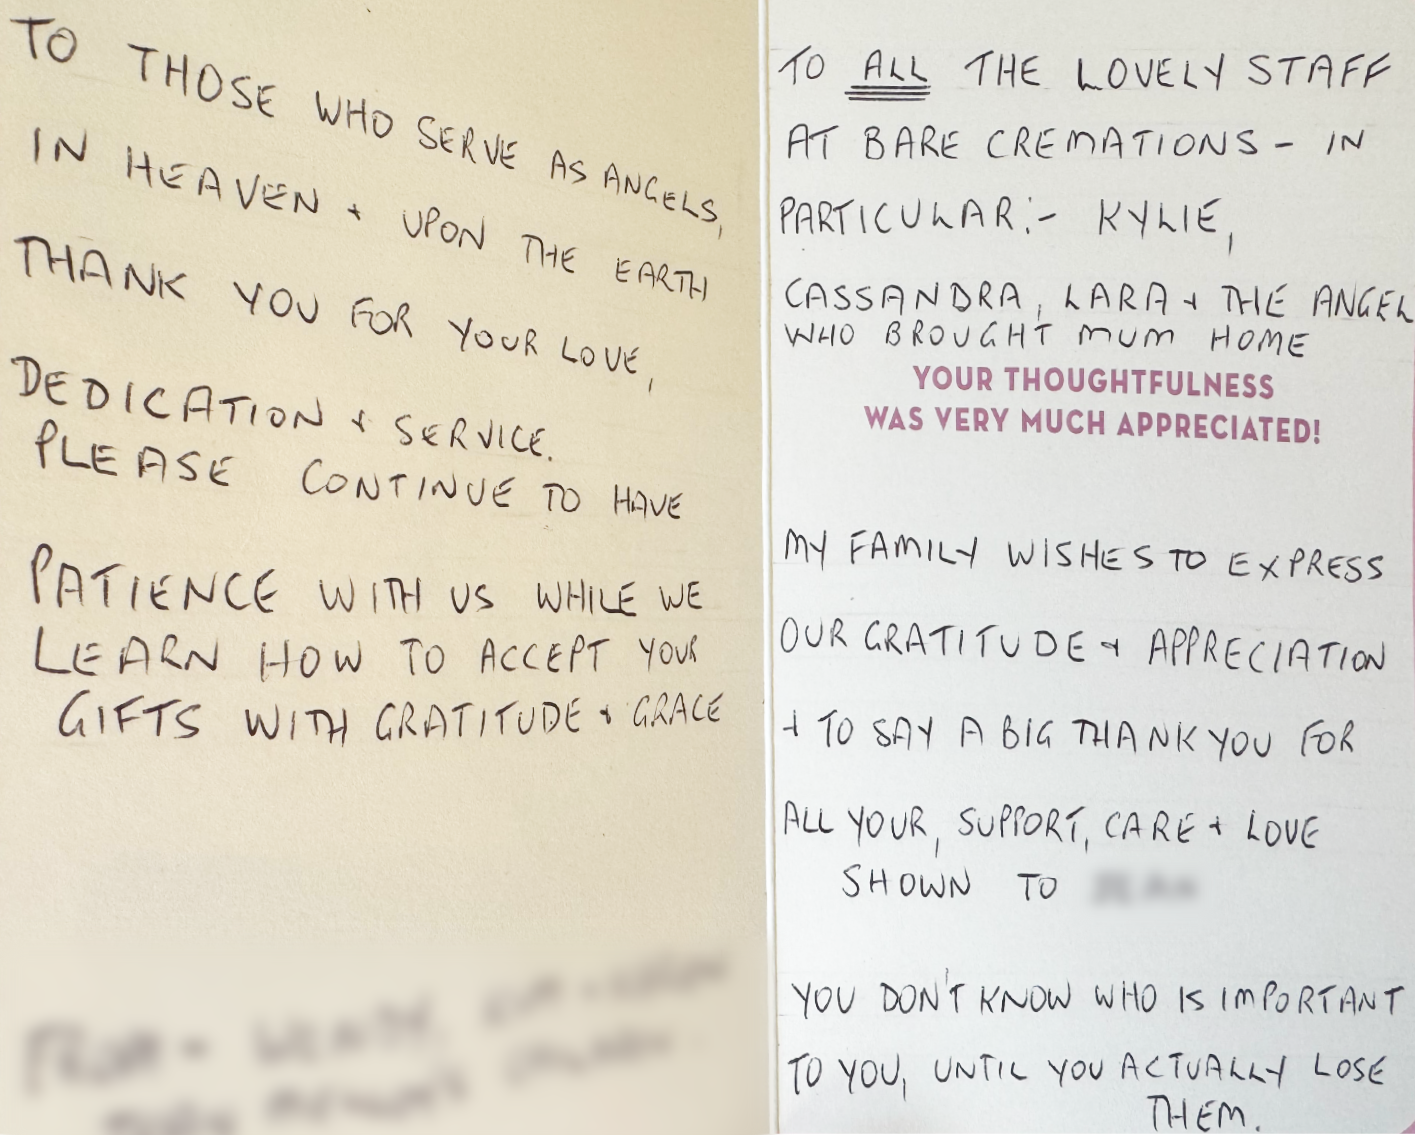 TO THOSE WHO SERVE AS ANGELS,
IN HEAVEN + UPON THE EARTH
THANK YOU FOR YOUR LOVE,
DEDICATION + SERVICE.
PLEASE CONTINUE TO HAVE
PATIENCE WITH US WHILE WE
LEARN HOW TO ACCEPT YOUR
GIFTS WITH GRATITUDE + GRACE
TO ALL THE LOVELY STAFF
AT BARE CREMATIONS - IN
PARTICULAR:- KYLIE,
CASSANDRA, LARA + THE ANGEL
WHO BROUGHT MUM HOME
YOUR THOUGHTFULNESS
WAS VERY MUCH APPRECIATED!
MY FAMILY WISHES TO EXPRESS
OUR GRATITUDE + APPRECIATION
+ TO SAY A BIG THANK YOU FOR
ALL YOUR, SUPPORT, CARE + LOVE
SHOWN TO
YOU DON'T KNOW WHO IS IMPORTANT
TO YOU, UNTIL YOU ACTUALLY LOSE
THEM.